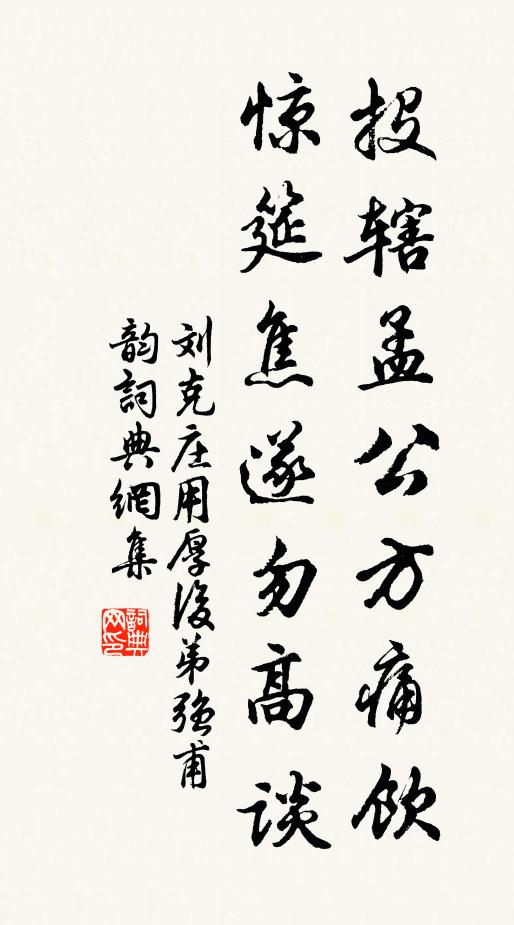 投辖孟公方痛饮
惊筵焦遂勿高谈
刘克庄用厚後弟強甫
韵詞典網集
詞典
网印